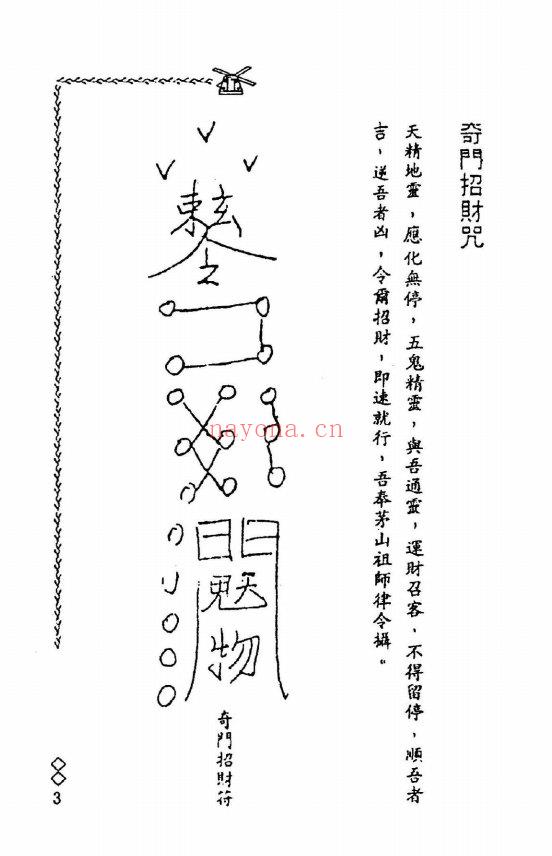 奇門招財咒
天精地靈，應化無停，五鬼精靈，與吾通靈，運財召客，不得留停，順吾者
吉，逆吾者凶，令爾招財，即速就行，吾奉茅山祖師律令攝。
東玄
之
鬼天
物
奇門招財符
3
nayona.cn